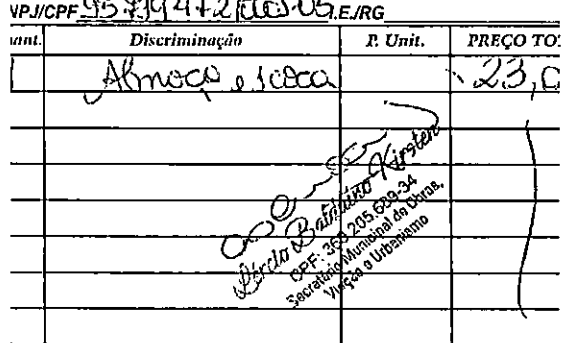 NPJ/CPF 95.719.472/0001-05 I.E./RG
ant. Discriminação P. Unit. PREÇO TO
Almoço e 1 coca 23,0
Dércio Batduino Kirsten
CPF: 369.205.689-34
Secretário Municipal de Obras,
Viação e Urbanismo